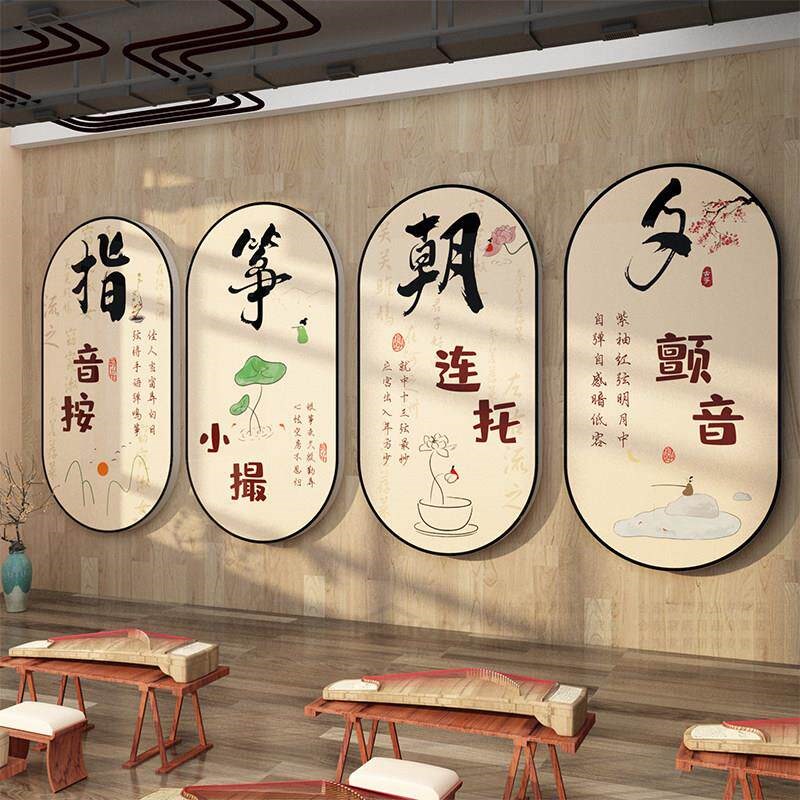 指
音按
佳人当窗弄白日
弦将手语弹鸣筝
筝
小撮
银筝夜久殷勤弄
心怯空房不忍归
朝
连托
就中十三弦最妙
应宫出入年方少
夕
古筝
颤音
紫袖红弦明月中
自弹自感暗低容